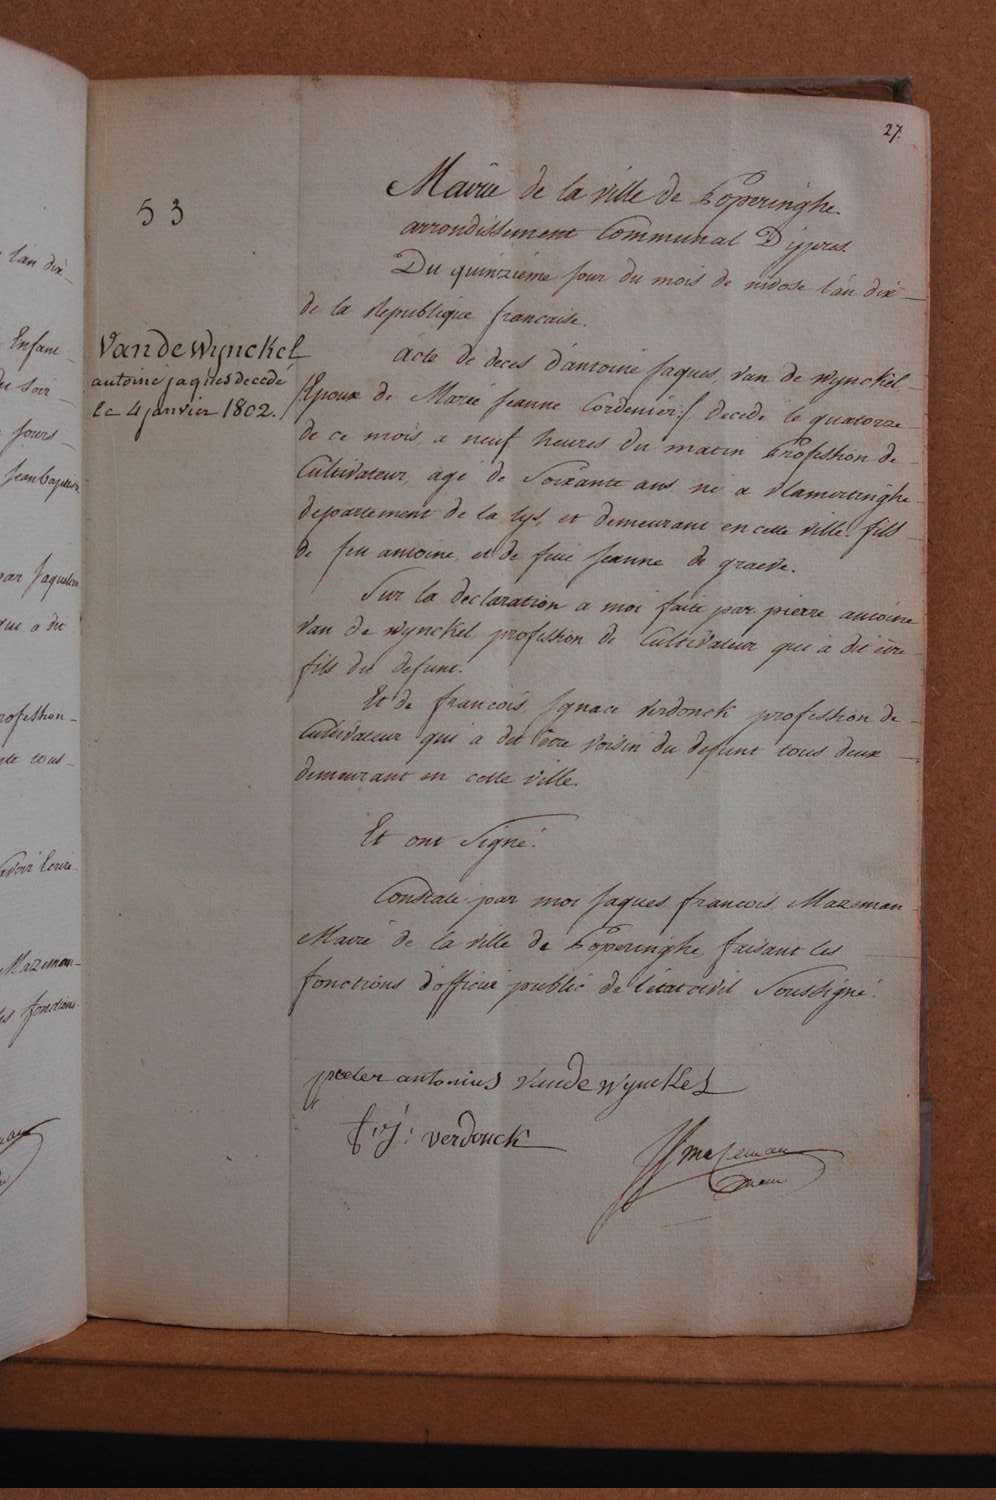 27.
53
Mairie de la ville de Poperinghe
arrondissement Communal D'ypres.
Du quinzieme jour du mois de nivose l'an dix
de la Republique francaise.
Vande Wynckel
antoine jaques decedé
le 4 janvier 1802.
Acte de deces d'antoine Jaques, van de wynckel
/Epoux de Marie Jeanne Cordenier:/ decede le quatorze
de ce mois, a neuf heures du matin Profession de
Cultivateur, agé de Soixante ans né a vlamertinghe
departement de la lys, et demeurant en cette ville. fils
de feu antoine, et de feue Jeanne de graeve.
Sur la declaration a moi faite par pierre antoine
van de wynckel profession de Cultivateur qui a dit être
fils du defunt.
Et de francois Ignace verdonck profession de
Cultivateur qui a dit être voisin du defunt tous deux
demeurant en cette ville.
Et ont Signé.
Constate par moi Jaques francois Mazeman
Maire de la ville de Poperinghe faisant les
fonctions d'officier public de l'etat civil Soussigné.
pieter antonius vande wynckel
f: j: verdonck
JJ mazeman
maire
l'an dix
Enfant
du soir
jours
jean baptiste
par Jaques
qui a dit
profession
tous
Mazeman
les fonctions